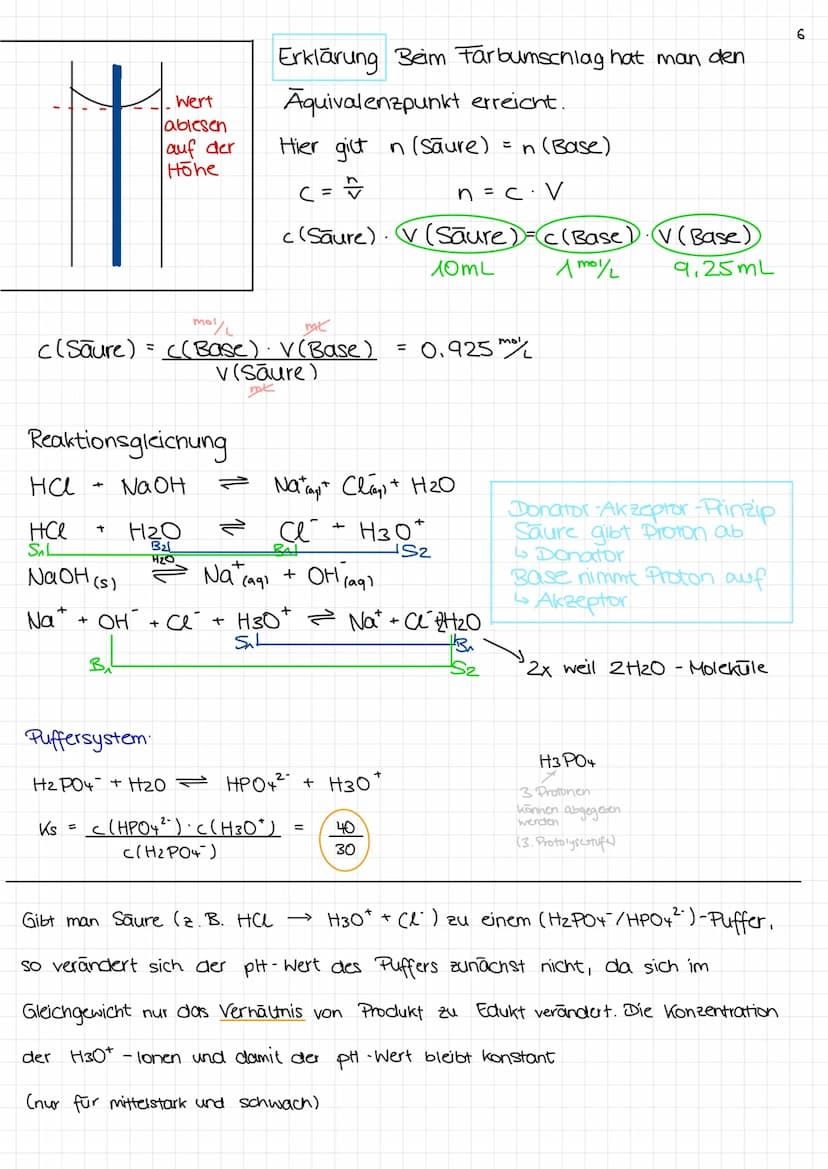 6
Wert
ablesen
auf der
Höhe
Erklärung Beim Farbumschlag hat man den
Äquivalenzpunkt erreicht.
Hier gilt n (Säure) = n (Base)
c = n/V n = c · V
c (Säure) · V (Säure) = c (Base) · V (Base)
10mL 1 mol/L 9,25mL
mol/L mL
c (Säure) = c(Base) · V(Base) / V(Säure) = 0.925 mol/L
mL
Reaktionsgleichung
HCl + NaOH ⇌ Na⁺(aq) + Cl⁻(aq) + H2O
HCl + H2O ⇌ Cl⁻ + H3O⁺
S1 B2 B1 S2
NaOH (s) H2O ⇌ Na⁺(aq) + OH⁻(aq)
Na⁺ + OH⁻ + Cl⁻ + H3O⁺ ⇌ Na⁺ + Cl⁻ + 2H2O
S1 B1
B2 S2
2x weil 2H2O - Moleküle
Donator-Akzeptor-Prinzip
Säure gibt Proton ab
↳ Donator
Base nimmt Proton auf
↳ Akzeptor
Puffersystem:
H2PO4⁻ + H2O ⇌ HPO4²⁻ + H3O⁺
Ks = c(HPO4²⁻) · c(H3O⁺) / c(H2PO4⁻) = 40/30
H3PO4
3 Protonen
können abgegeben
werden
(3. Protolysestufe)
Gibt man Säure (z.B. HCl → H3O⁺ + Cl⁻) zu einem (H2PO4⁻/HPO4²⁻)-Puffer,
so verändert sich der pH-Wert des Puffers zunächst nicht, da sich im
Gleichgewicht nur das Verhältnis von Produkt zu Edukt verändert. Die Konzentration
der H3O⁺ -Ionen und damit der pH-Wert bleibt konstant
(nur für mittelstark und schwach)